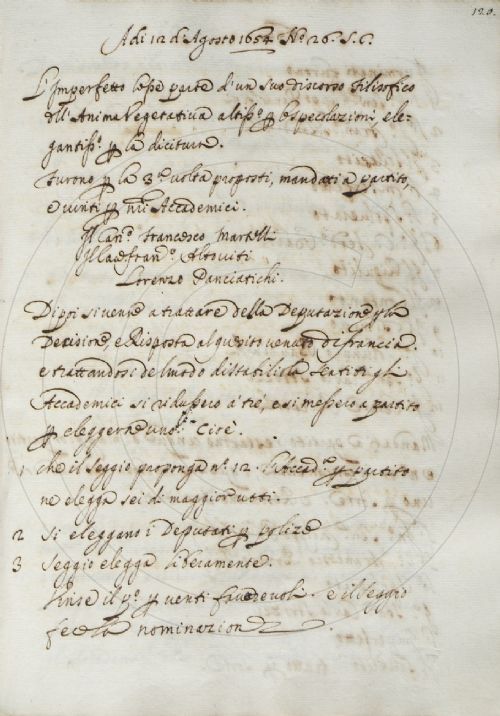 120.
Adi 12 d'Agosto 1654 N.° 26. S.C.
L'Imperfetto lesse parte d'un suo discorso filosofico
dell'Anima Vegetativa altiss.° p le speculazioni, ele-
gantiss.° p la dicitura.
Furono p la 3.a volta proposti, mandati a partito,
e vinti p nri Accademici.
Il Can.° Francesco Martelli
Il Fran.° Altoviti
Lorenzo Panciatichi.
Di poi si venne a trattare della Deputazione p la
Decisione, e Risposta al quesito venuto di francia.
e trattandosi del modo di stabilirla
Accademici si ridussero a tre, e si messero a partito
p eleggerne uno. Cioè.
1 che il Seggio proponga n.° 12. Accad.ci p partito
ne elegga sei di maggior
2 Si eleggano i Deputati p polize
3 Seggio elegga liberamente.
Vinse il p.° p venti favorevoli. e il Seggio
fece la nominazione